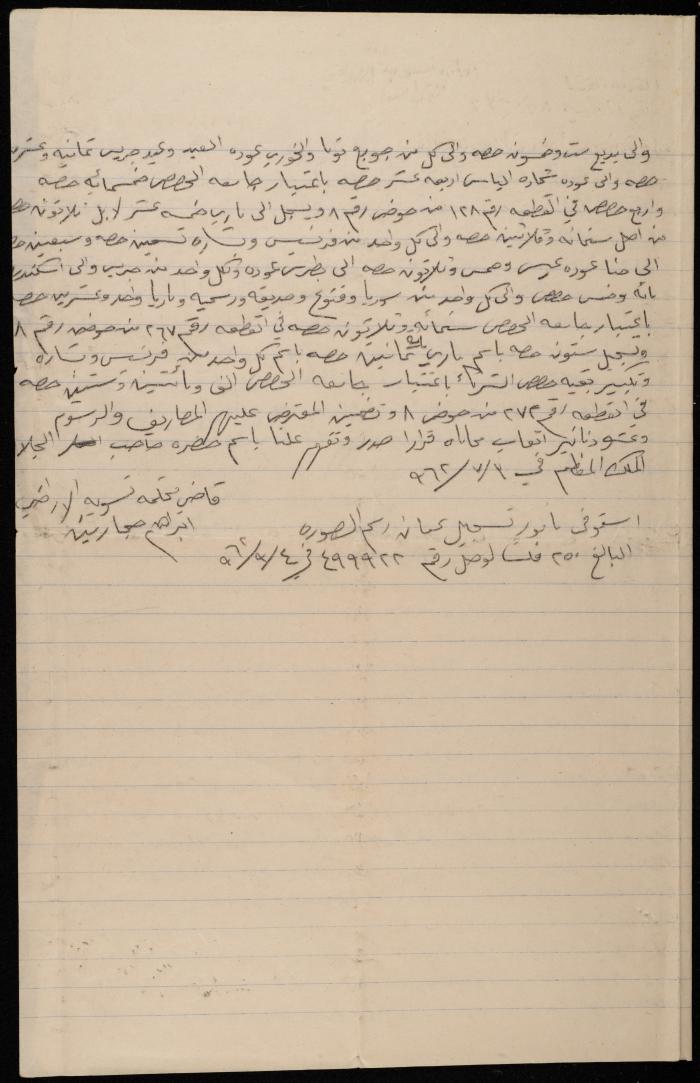 والى بديع ست وخمسون حصه والى كل من جريس توما والخوري عوده العيد وعيد جريس ثمانيه وعشرين
حصه والى عوده شحاده الياس اربعه عشر حصه باعتبار جامعه الحصص خمسمائه حصه
واربع حصص في القطعه رقم ١٢٨ من حوض رقم ٨ ويسجل الى ماري خمسه عشر لا بل ثلاثون حصه
من اصل ستمائه وثلاثين حصه والى كل واحد من فرنسيس وساره تسعين حصه وسبعين حصه
الى حنا عوده عيسى وخمس وثلاثون حصه الى بطرس عوده ولكل واحد من حرب والى اسكندر
مائه وخمس حصص والى كل واحد من سوريا وفتوح وصديقه ورسميه وماريا واحد وعشرين حصه
باعتبار جامعه الحصص ستمائه وثلاثون حصه في القطعه رقم ٢٦٧ من حوض رقم ٨
وتسجيل ستون حصه باسم ماري مائه ثمانين حصه باسم كل واحد من فرنسيس وساره
وتكبير بقيه حصص الشركاء باعتبار جامعه الحصص الف ومائتين وستين حصه
في القطعه رقم ٢٧٢ من حوض ٨ وتضمين المعترض عليهم المصاريف والرسوم
وعشرة دنانير اتعاب محاماه قرارا صدر وتفهم علنا باسم حضره صاحب الجلاله
الملك المعظم في ٣/٧/٩٦٢
قاضي محكمه تسويه الاراضي
ابراهيم حجازين
استوفى مامور تسجيل عمان رسم الصوره
البالغ ٢٥٠ فلسا لوصل رقم ٤٩٩٩٢٢ في ٤/٧/٩٦٢